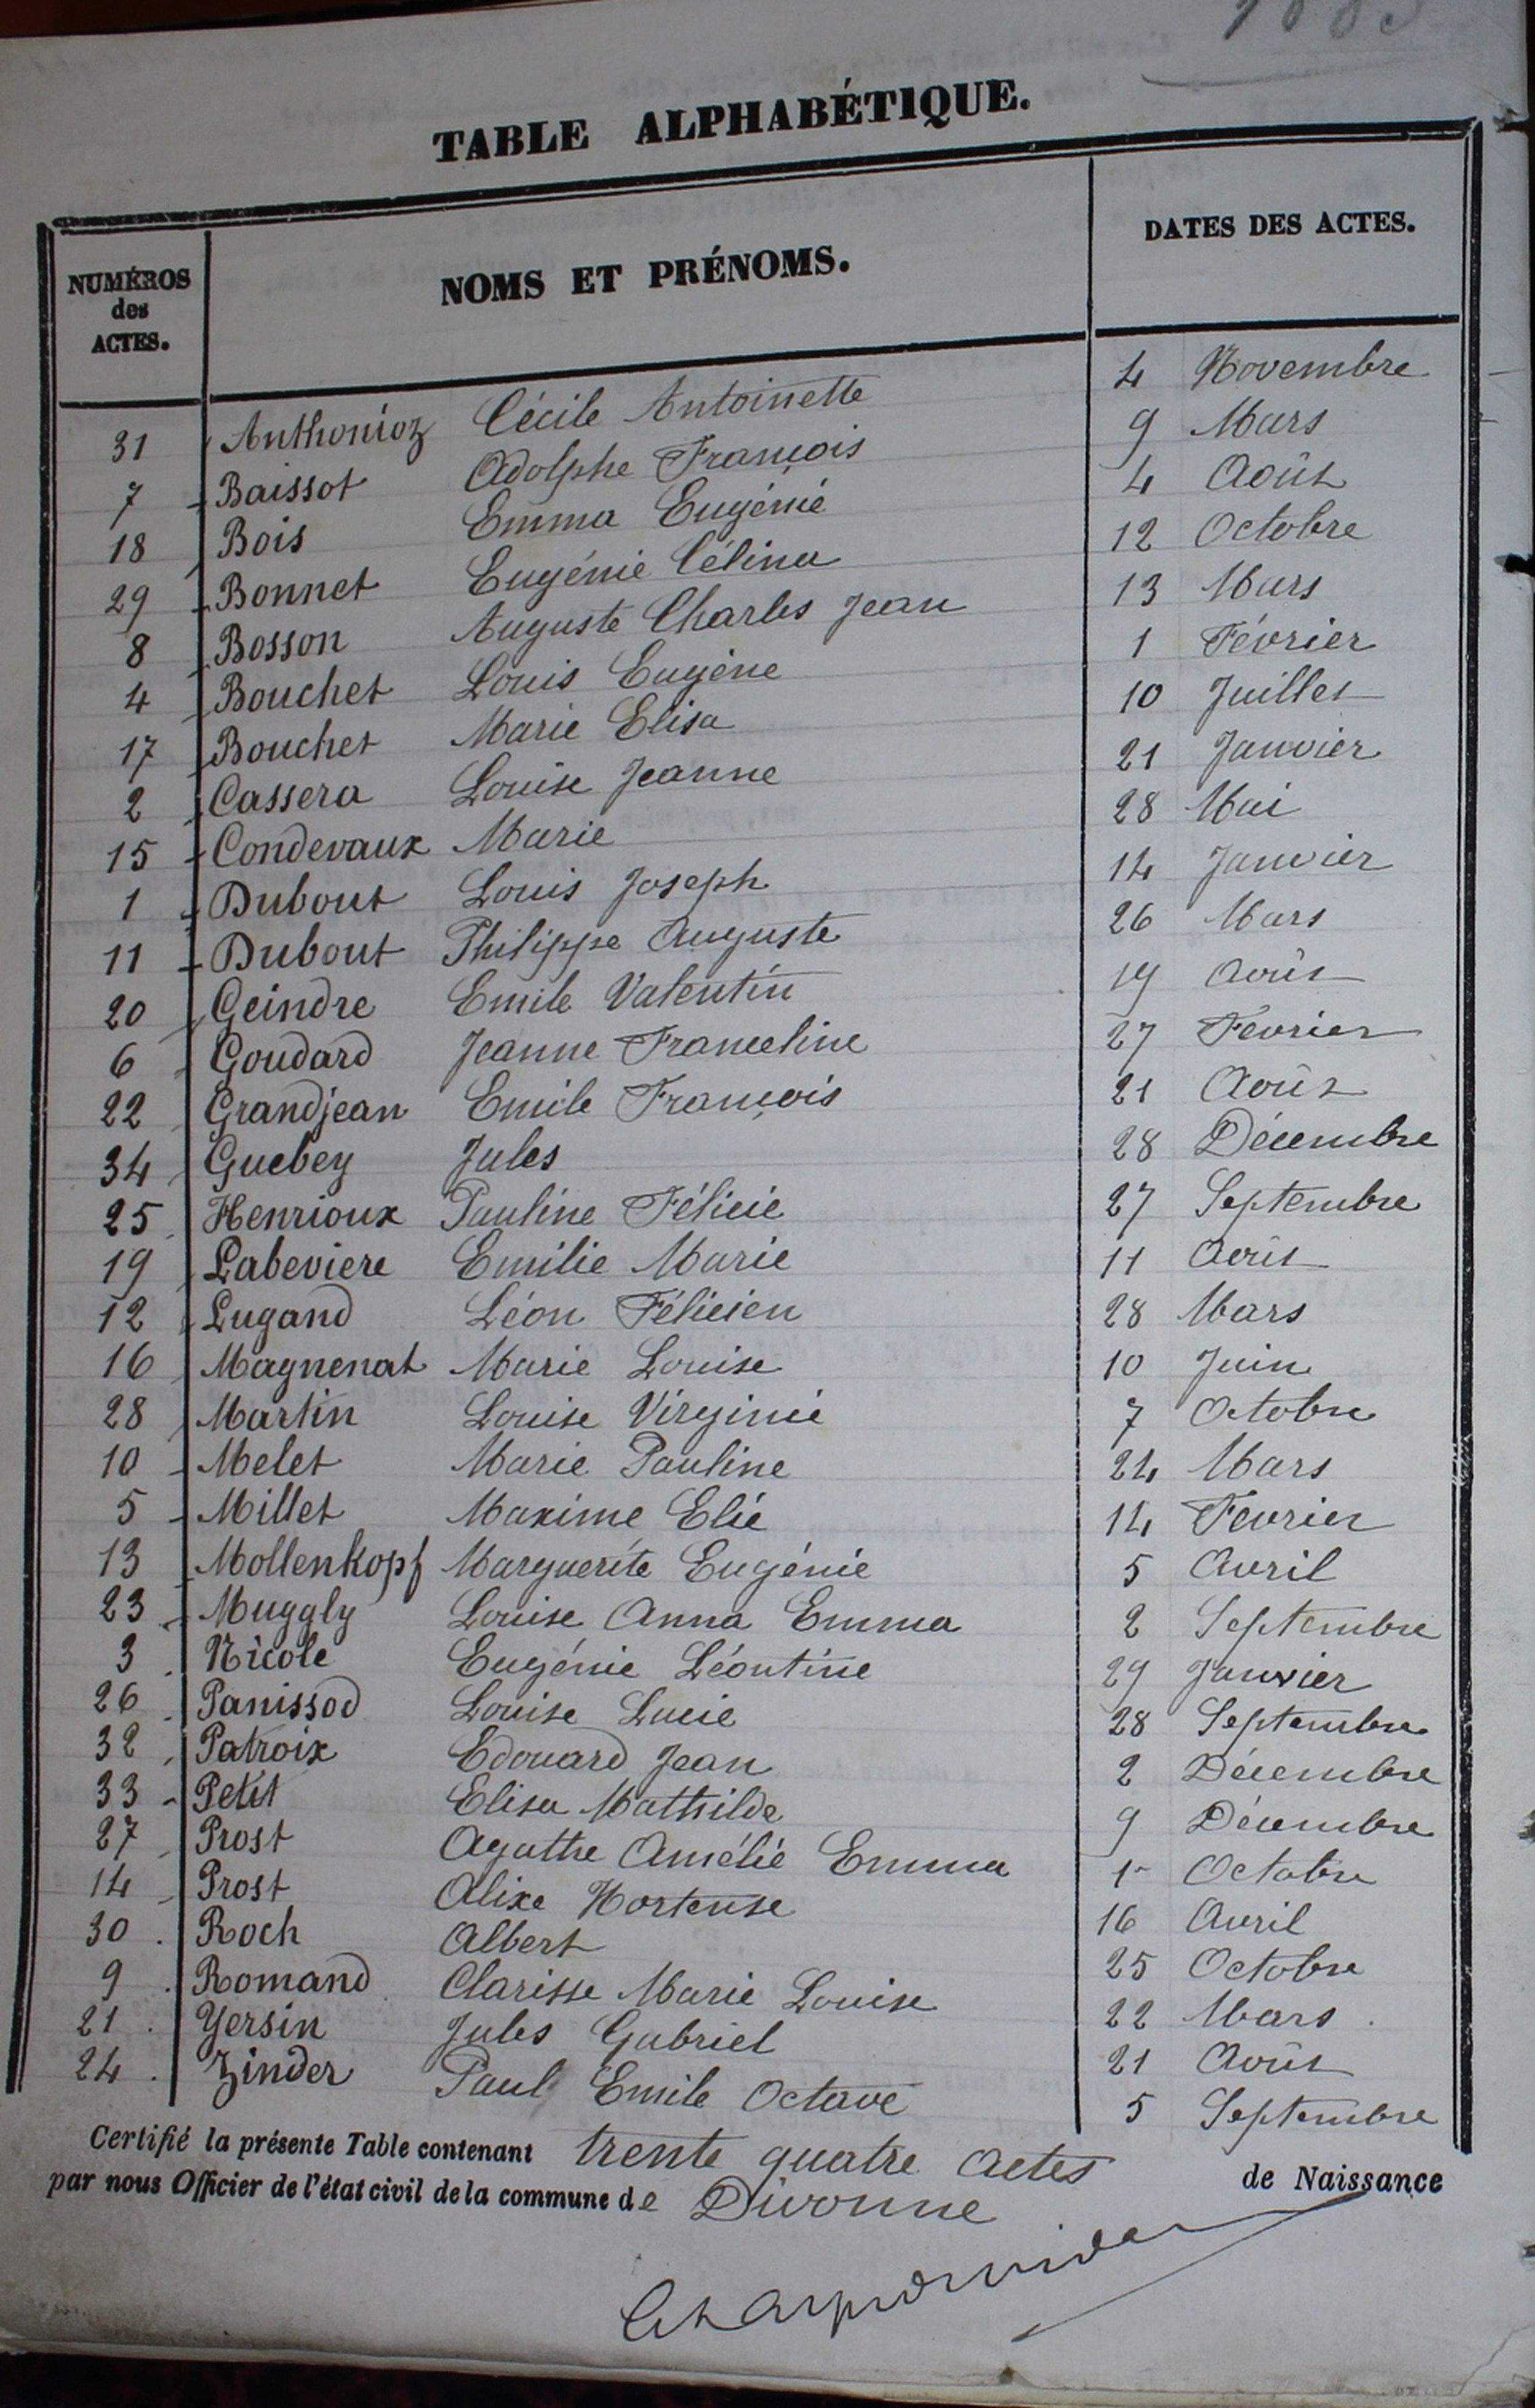 TABLE ALPHABÉTIQUE.
NUMÉROS des ACTES. NOMS ET PRÉNOMS. DATES DES ACTES.
31 Anthonioz Cécile Antoinette 4 Novembre
7 Baissot Adolphe François 9 Mars
18 Bois Emma Eugénie 4 Août
29 Bonnet Eugénie Célina 12 Octobre
8 Bosson Auguste Charles Jean 13 Mars
4 Bouchet Louis Eugène 1 Février
17 Bouchet Marie Elisa 10 Juillet
2 Cassera Louise Jeanne 21 Janvier
15 Condevaux Marie 28 Mai
1 Dubout Louis Joseph 14 Janvier
11 Dubout Philippe Auguste 26 Mars
20 Geindre Emile Valentin 19 Août
6 Goudard Jeanne Franceline 27 Février
22 Grandjean Emile François 21 Août
34 Guebey Jules 28 Décembre
25 Henrioux Pauline Félicie 27 Septembre
19 Labeviere Emilie Marie 11 Août
12 Lugand Léon Félicien 28 Mars
16 Magnenat Marie Louise 10 Juin
28 Martin Louise Virginie 7 Octobre
10 Melet Marie Pauline 24 Mars
5 Millet Maxime Elie 14 Février
13 Mollenkopf Marguerite Eugénie 5 Avril
23 Muggly Louise Anna Emma 2 Septembre
3 Nicole Eugénie Léontine 29 Janvier
26 Panissod Louise Lucie 28 Septembre
32 Patroix Edouard Jean 2 Décembre
33 Petit Elisa Mathilde 9 Décembre
27 Prost Agathe Amélie Emma 1er Octobre
14 Prost Alixe Hortense 16 Avril
30 Roch Albert 25 Octobre
9 Romand Clarisse Marie Louise 22 Mars
21 Yersin Jules Gabriel 21 Août
24 Zinder Paul Emile Octave 5 Septembre
Certifié la présente Table contenant trente quatre actes de Naissance
par nous Officier de l'état civil de la commune de Divonne